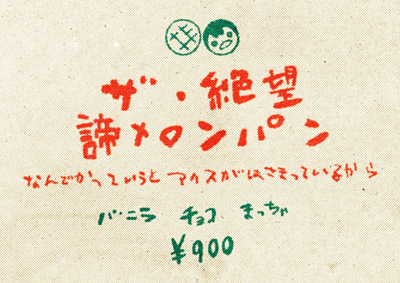 ザ・絶望
諦メロンパン
なんでかっていうと アイスがはさまっているから
バニラ チョコ まっちゃ
¥900